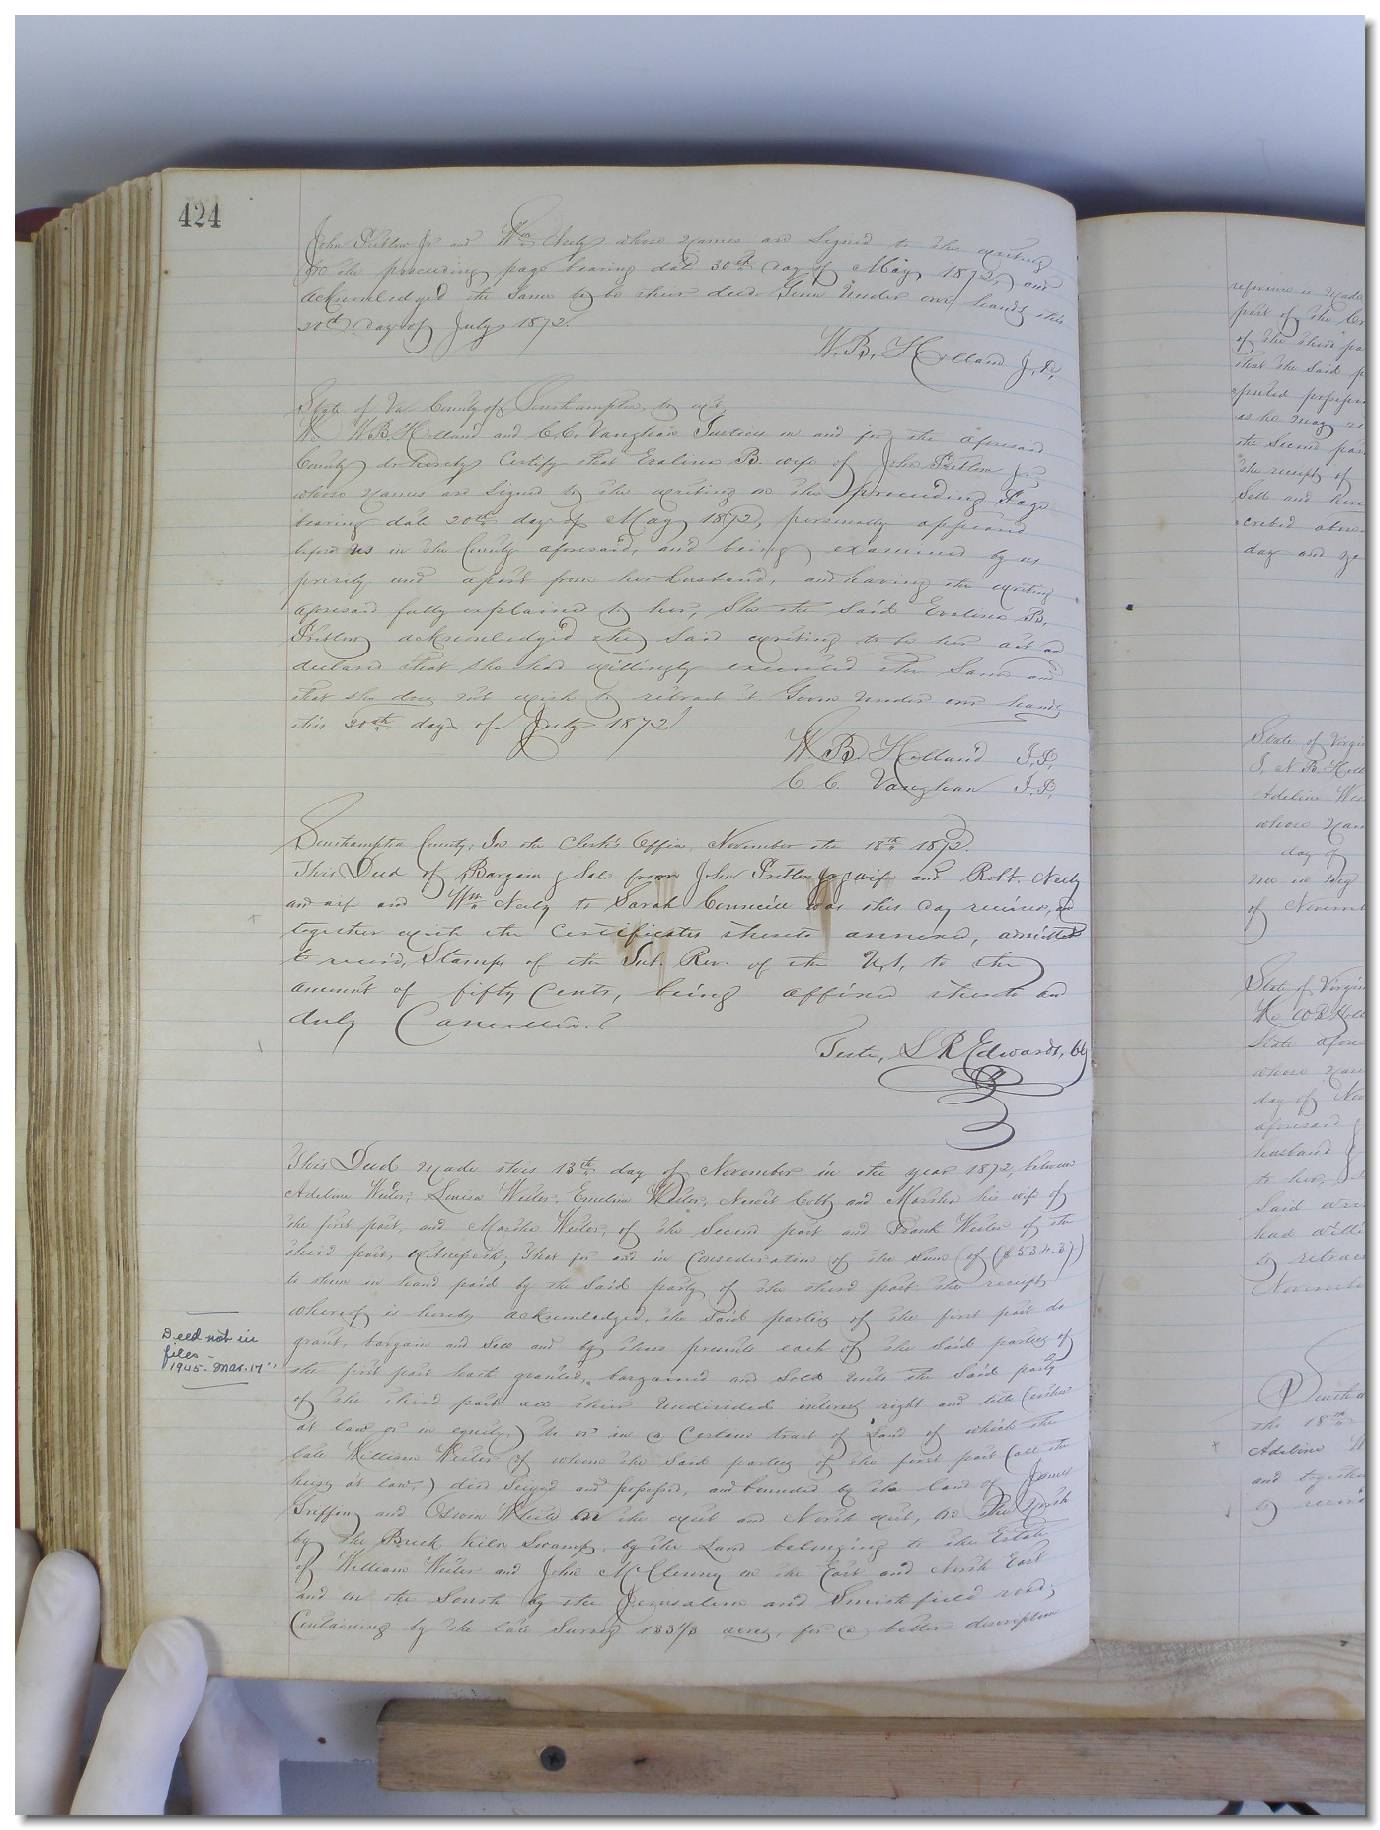 424
John Pretlow Jr and Wm Neely whose names are signed to the writing
on the preceeding page bearing date 30th day of May 1872, and
acknowledged the same to be their deed. Given under our hands this
20th day of July 1872.
W. B. Holland J.P.
State of Va. County of Southampton, to wit;
We W.B. Holland and C.C. Vaughan Justices in and for the aforesaid
County do hereby Certify that Evalina B. wife of John Pretlow Jr.
whose names are signed to the writing on the preceeding Page
bearing date 20th day of May 1872, personally appeared
before us in the County aforesaid, and being examined by us
privily and apart from her husband, and having the writing
aforesaid fully explained to her, She the said Evalina B.
Pretlow acknowledged the said writing to be her act and
declared that she had willingly executed the same and
that she does not wish to retract it. Given under our hands
this 20th day of July 1872
W. B. Holland J.P.
C. C. Vaughan J.P.
Southampton County; In the Clerk's Office, November the 18th 1872.
This Deed of Bargain & Sale from John Pretlow Jr & wife and Robt. Neely
and wife and Wm Neely to Sarah Councill was this day received, and
together with the Certificates thereto annexed, admitted
to record, Stamps of the Int. Rev. of the U.S. to the
amount of fifty Cents, being affixed thereto and
duly Cancelled.
Teste, L R Edwards, Clk
This Deed made this 13th day of November in the year 1872, between
Adeline Wester, Louisa Wester, Emeline Wester, Newit Cobb and Martha his wife of
the first part, and Martha Wester, of the Second part and Frank Wester of the
third part, Witnesseth; That for and in Consideration of the Sum of
to them in hand paid by the Said party of the third part the receipt
whereof is hereby acknowledged, the Said parties of the first part do
grant, bargain and Sell and by these presents each of the Said parties of
the first part hath granted, bargained and Sold unto the Said party
of the third part all their undivided interest right and title (either
at law or in equity,) to or in a Certain tract of Land of which the
late William Wester of whom the Said parties of the first part (are the
heirs at law,) died Seized and possessed, and bounded by the land of James
Griffin and Edwin White on the west and North west, on the North
by the Brick kiln Swamp, by the Land belonging to the Estate
of William Wester and John McClenny on the East and North East
and on the South by the Jerusalem and Smithfield road;
Containing by the late Survey 133⅓ acres, for a better description
Deed not in
files –
1945- Mar. 17"
reference is made
part of the
of the third pa
that the said p
as he may
the Second par
the receipt of
Sell and
day and ye
State of Virgin
I, N B
Adeline Wes
whose nam
day of
me in my
of Novemb
State of Virgin
We W B Holl
State afore
whose nam
day of Nov
aforesaid
husband
to her,
Said wri
had willi
to retrac
November
Southa
the 18th
Adeline W
and together
to record